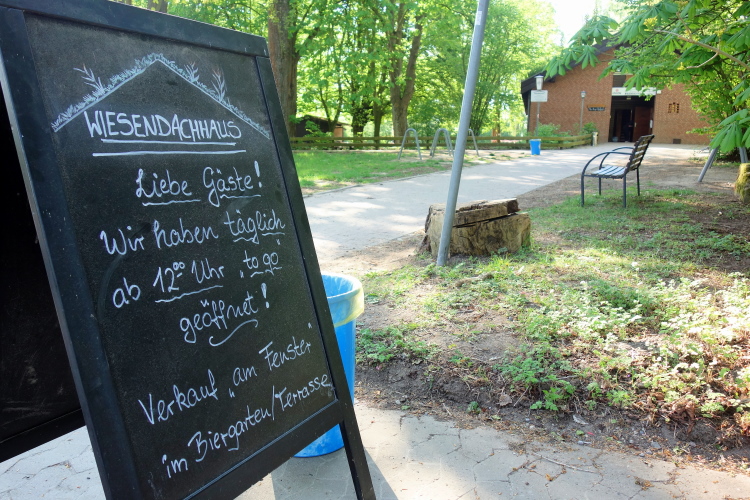 WIESENDACHHAUS
Liebe Gäste!
Wir haben täglich
ab 12⁰⁰ Uhr „to go"
geöffnet!
Verkauf „am Fenster"
im Biergarten/Terrasse